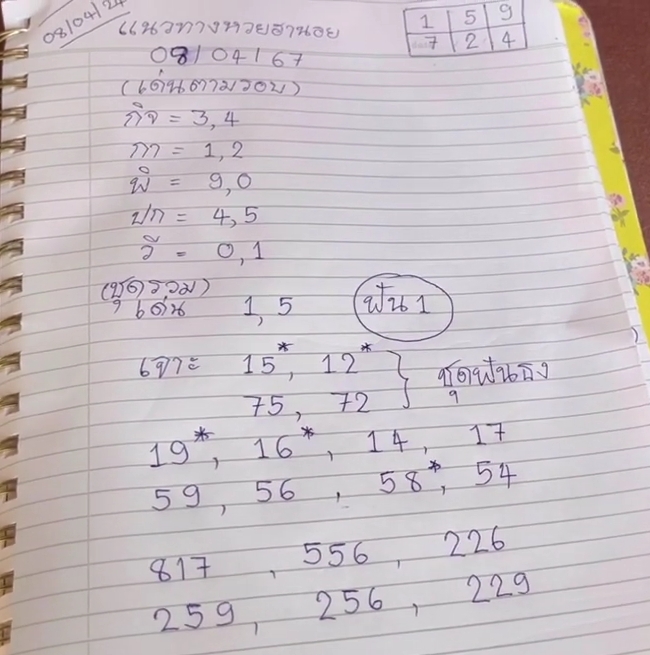 08/04/24
แนวทางหวยฮานอย
1 5 9
7 2 4
08/04/67
(เด่นตามรอบ)
กิจ = 3,4
กา = 1,2
พิ = 9,0
ปก = 4,5
วี = 0,1
(ชุดรวม)
เด่น 1,5 ฟัน 1
เจาะ 15*, 12*
75, 72 } ชุดฟันธง
19*, 16*, 14, 17
59, 56, 58*, 54
817, 556, 226
259, 256, 229